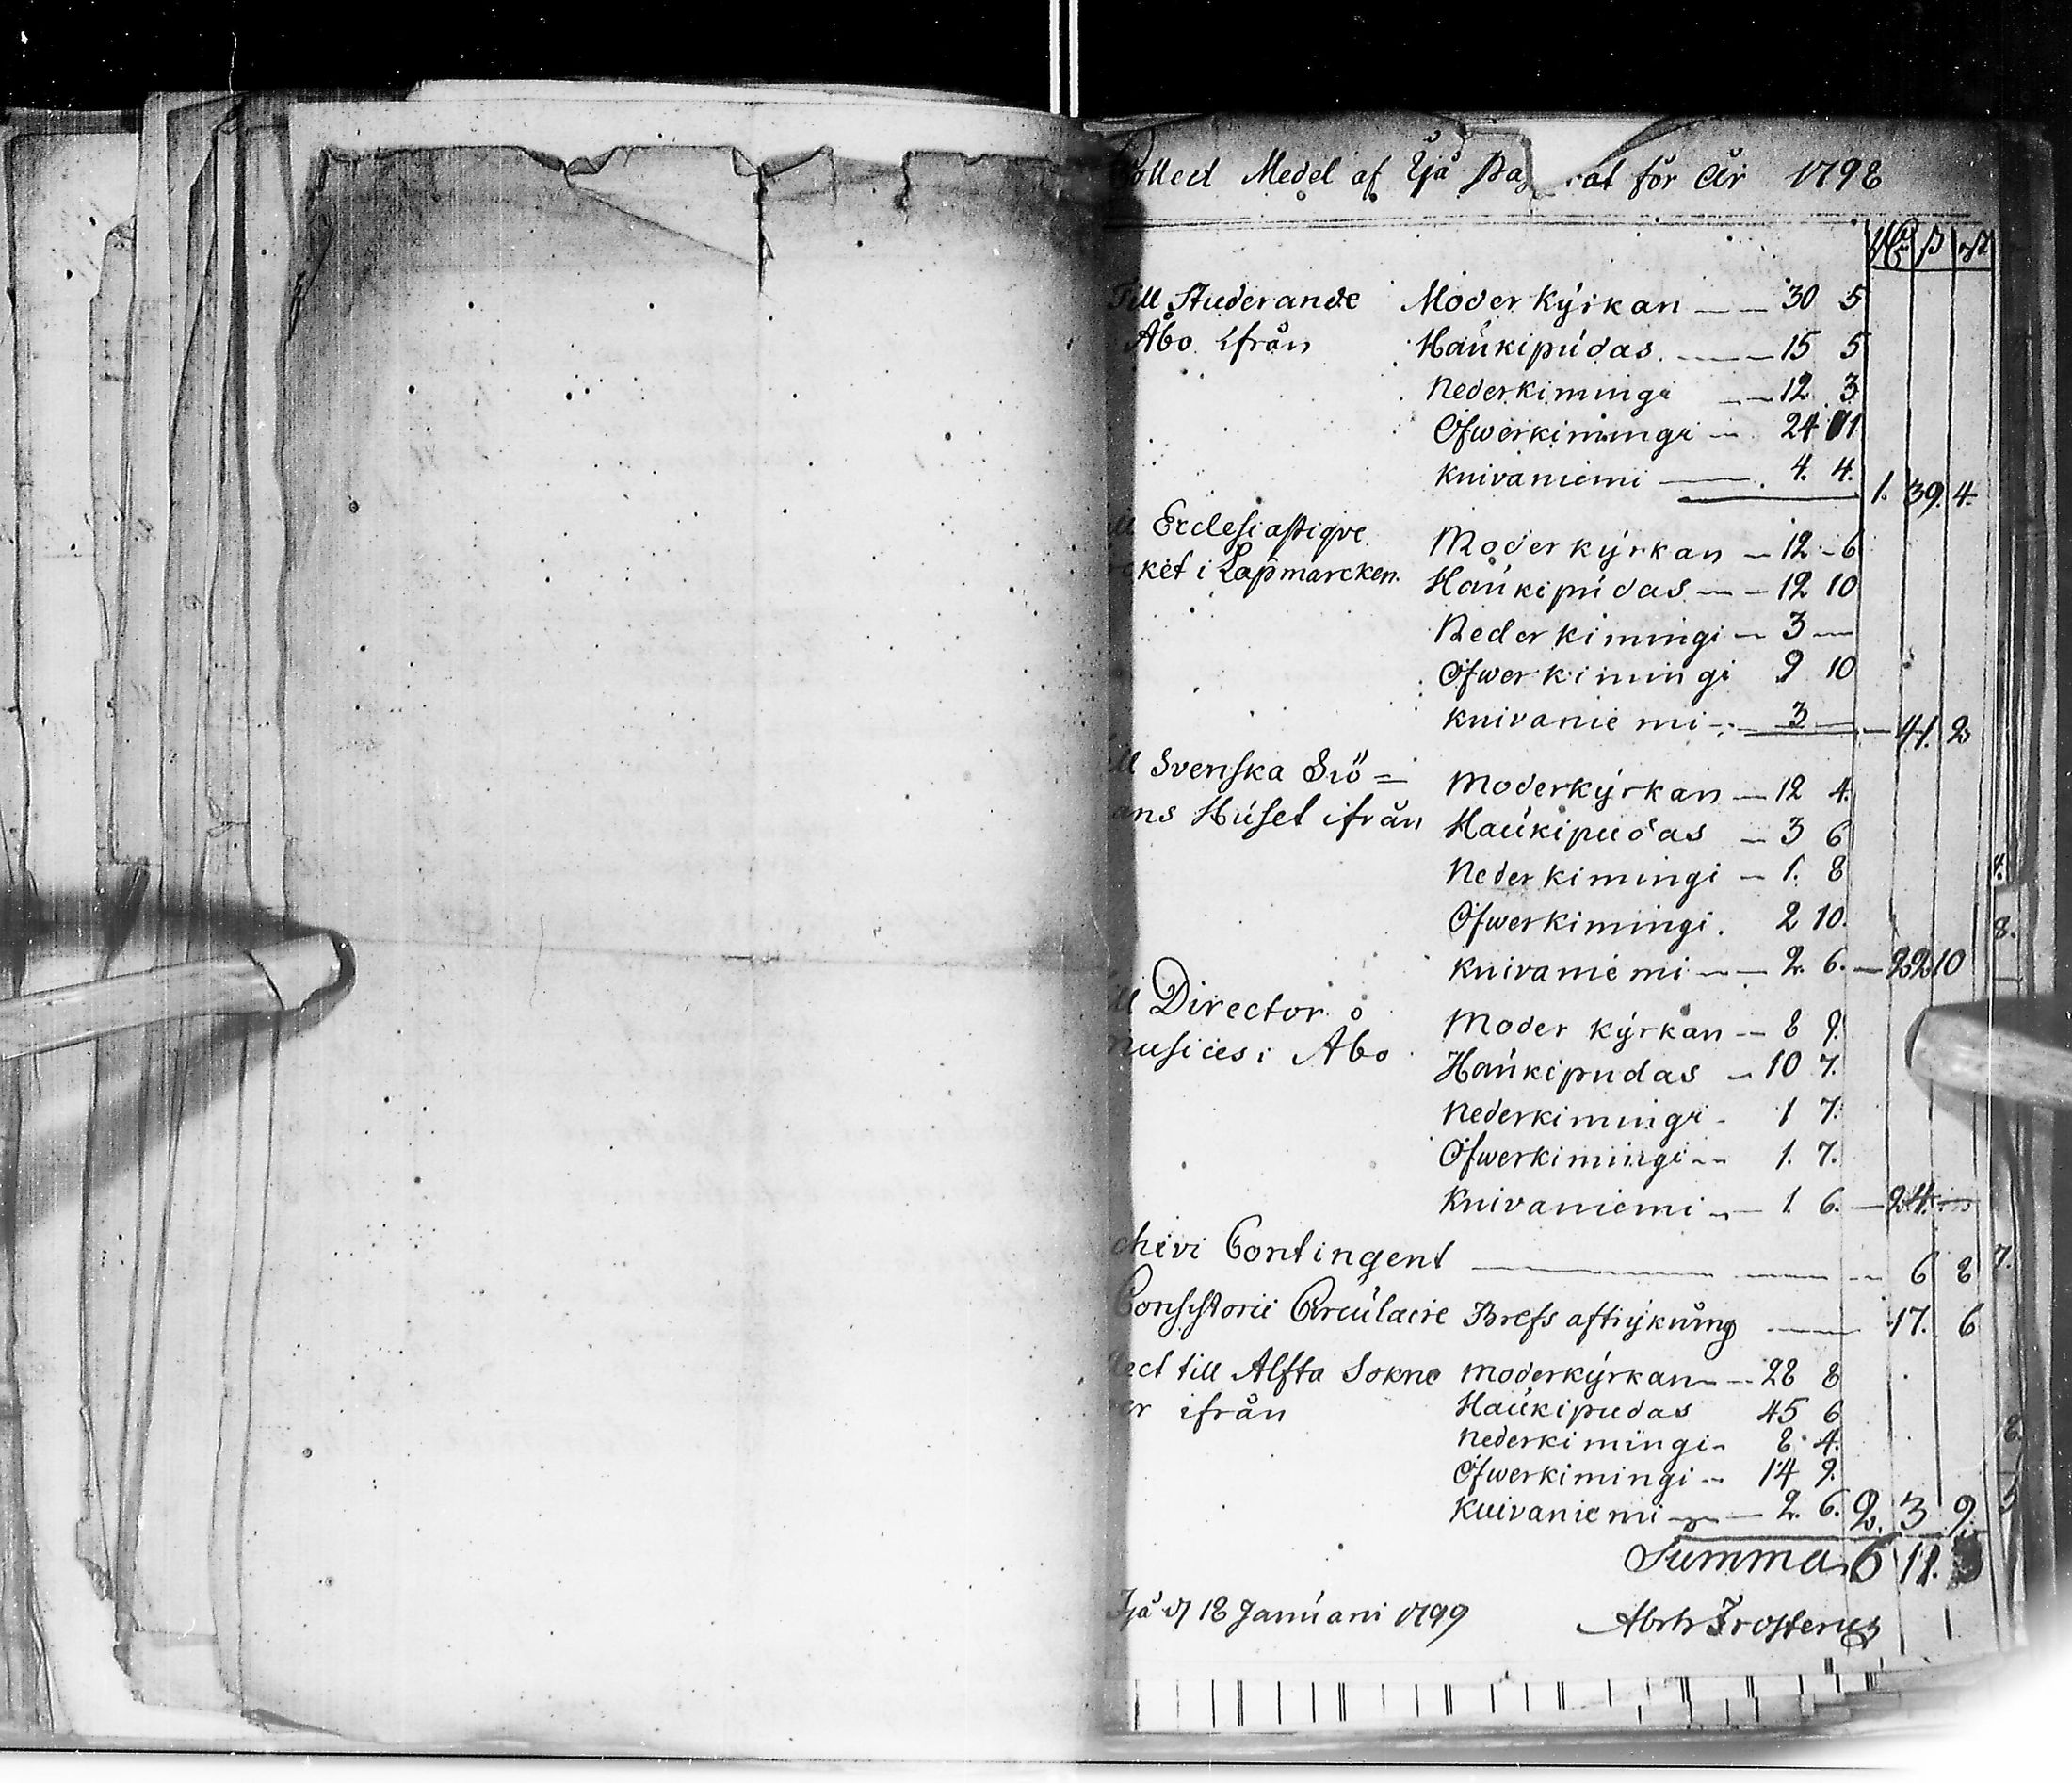 Collect Medel af Ijå Pa at för År 1798
Rdr ß rst
Till Studerande Moder Kÿrkan 30 5
Åbo ifrån Haukipudas 15 5
Nederkimingi 12 3
Öfwerkimingi 24 11
Kuivaniemi 4. 4. 1. 39. 4.
ll Ecclesiastiqve Moderkÿrkan 12 6
rcket i Lapmarcken. Haukipudas 12 10
Nederkimingi 3
Öfwerkimingi 9 10
Kuivaniemi 3 41. 2
ll Svenska Siö= Moderkÿrkan 12 4.
ans Huset ifrån Haukipudas 3 6
Nederkimingi 1. 8
Öfwerkimingi. 2 10.
Kuivaniemi 2. 6. 22 10
ll Director Moder kÿrkan 8 9.
musices i Åbo Haukipudas 10 7.
Nederkimingi 1 7.
Öfwerkimingi 1. 7.
Kuivaniemi 1. 6. 24.
chivi Contingent 6 8
Consistorii Circulaire Brefs aftrÿkning 17. 6
llect till Alfta Sokne Moderkÿrkan 28 8
er ifrån Haukipudas 45 6
Nederkimingi 8 4.
Öfwerkimingi 14 9.
Kuivaniemi 2. 6. 2. 3 9.
Summa 6 11.
Ijå d 18 Januarii 1799 Abrh Frosterus